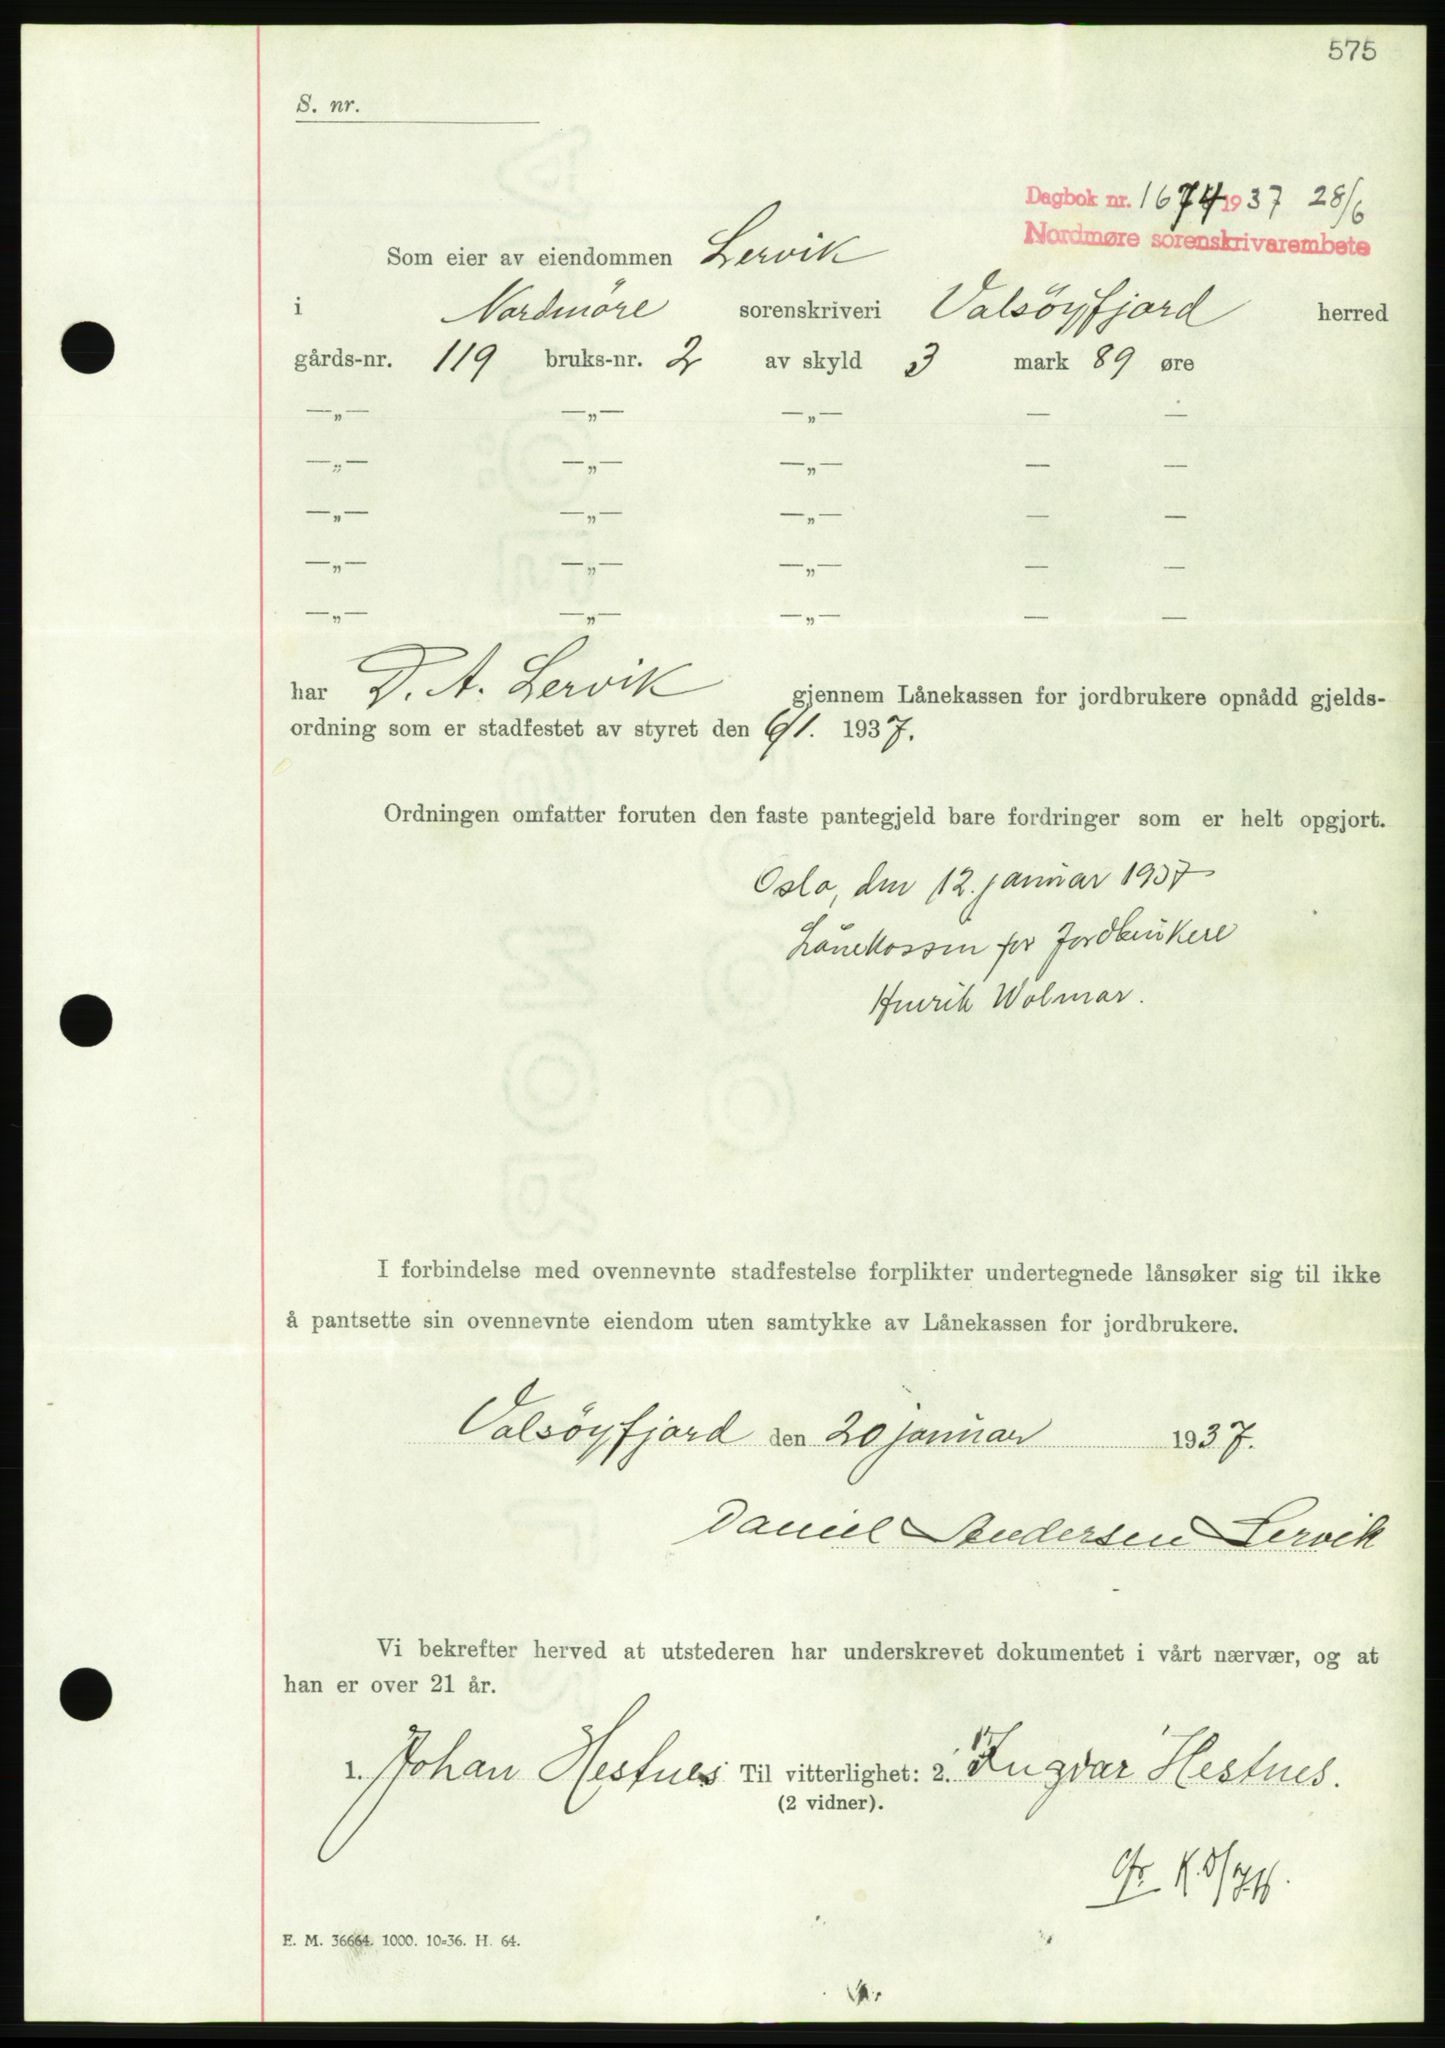 575
S. nr.
Dagbok nr. 1674 1937 28/6
Nordmøre sorenskrivarembete
Som eier av eiendommen Lervik
i Nordmöre sorenskriveri Valsöyfjord herred
gårds-nr. 119 bruks-nr. 2 av skyld 3 mark 89 øre
—„— —„— —„— — —
—„— —„— —„— — —
—„— —„— —„— — —
—„— —„— —„— — —
—„— —„— —„— — —
har D. A. Lervik gjennem Lånekassen for jordbrukere opnådd gjelds-
ordning som er stadfestet av styret den 6/1. 1937.
Ordningen omfatter foruten den faste pantegjeld bare fordringer som er helt opgjort.
Oslo, den 12. januar 1937
Lånekassen for Jordbrukere
Henrik Wolmar.
I forbindelse med ovennevnte stadfestelse forplikter undertegnede lånsøker sig til ikke
å pantsette sin ovennevnte eiendom uten samtykke av Lånekassen for jordbrukere.
Valsöyfjord den 20 januar 1937.
Daniel Andersen Lervik
Vi bekrefter herved at utstederen har underskrevet dokumentet i vårt nærvær, og at
han er over 21 år.
1. Johan Hestnes Til vitterlighet: 2. Ingvar Hestnes.
(2 vidner).
E. M. 36664. 1000. 10-36. H. 64.